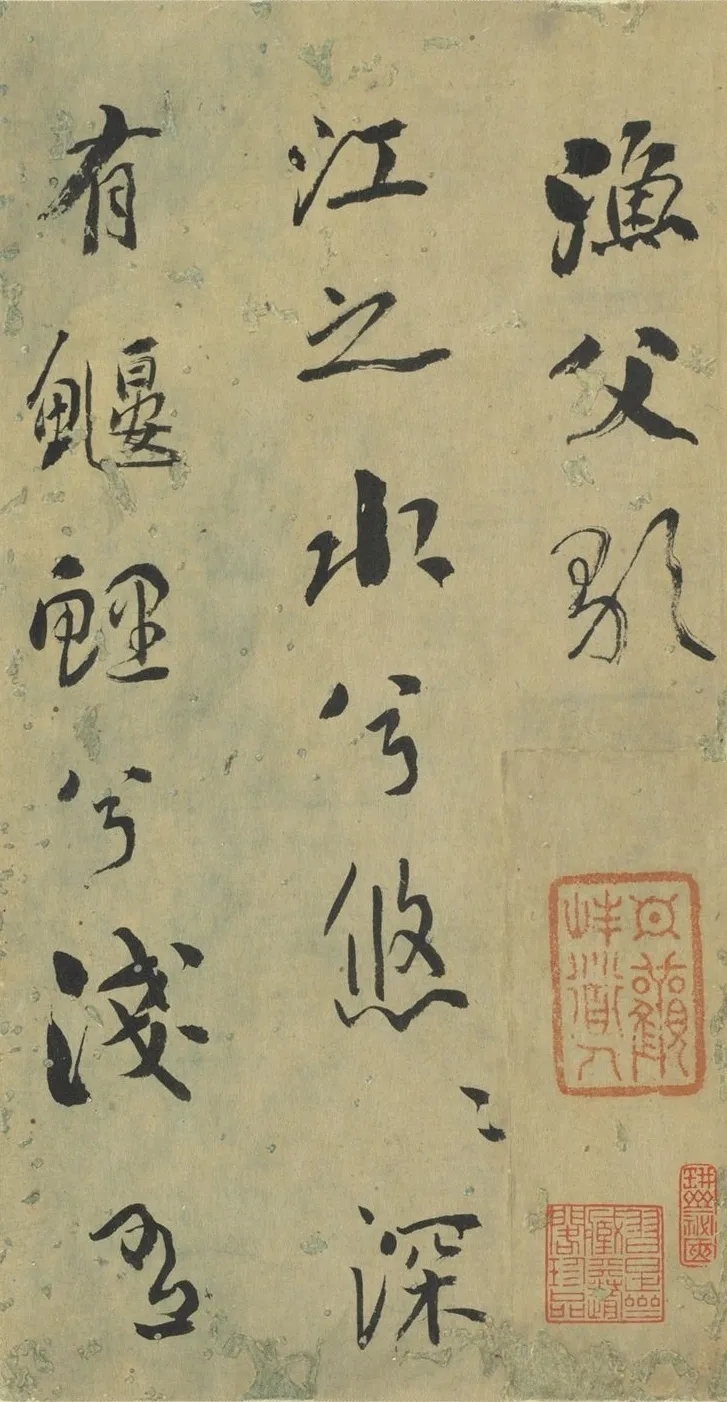 漁父歌
江之水兮悠〻深
有鰋鯉兮淺有